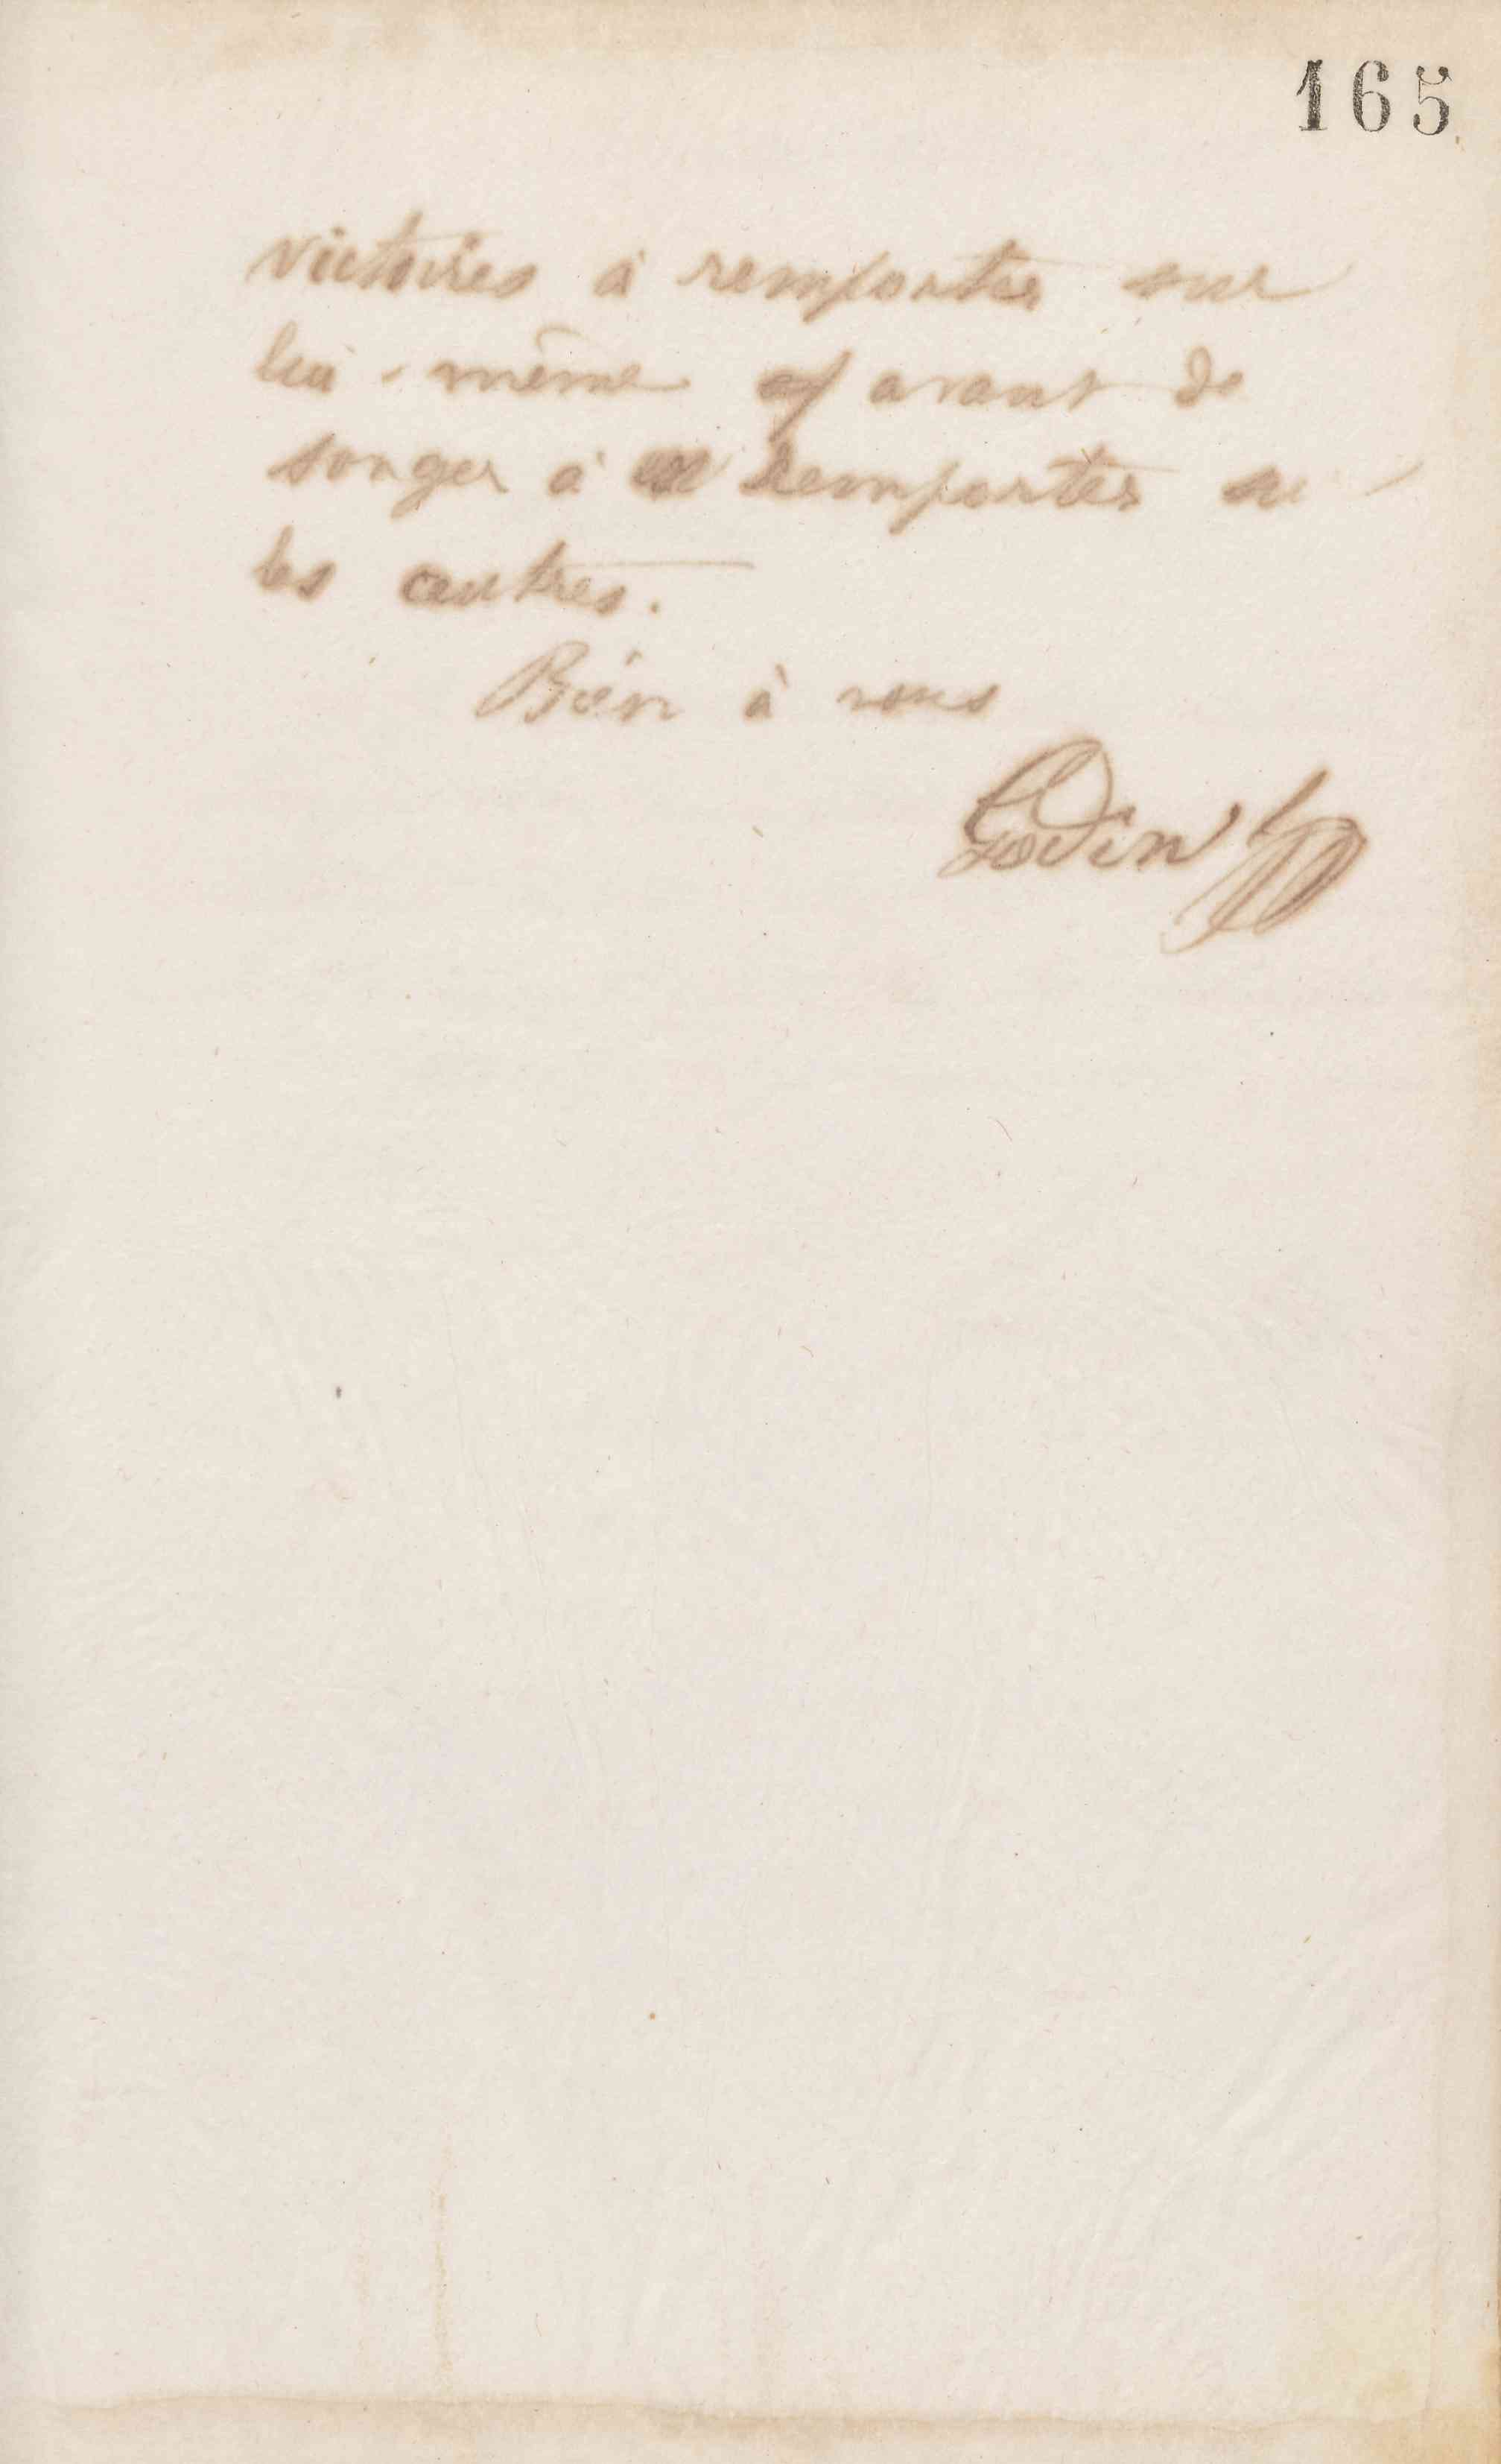 165
victoires à remporter sur
lui-même avant de
songer à remporter
les autres.
Bien à vous
Godin